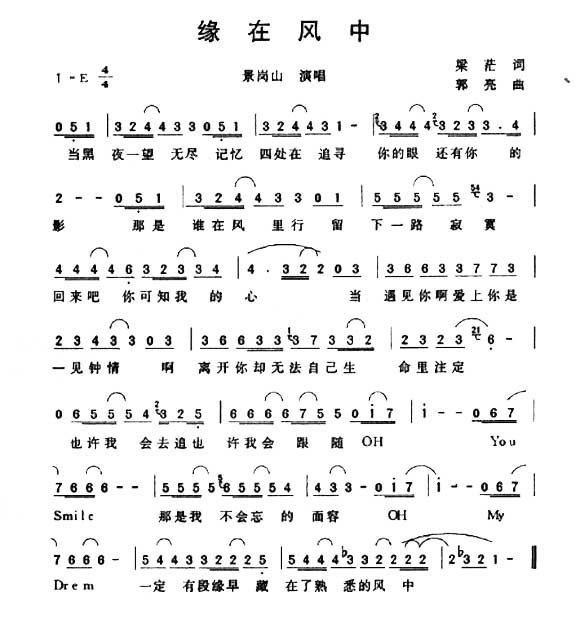 缘在风中
1=E 4/4 景岗山 演唱 梁茫 词
郭亮 曲
051 | 324433051 | 3244431- | 3444 3233.4 |
当黑 夜一望 无尽 记忆 四处在 追寻 你的眼 还有你 的
2--051 | 324433301 | 55555 3- |
影 那是 谁在风 里行 留 下一路 寂寞
44446323334 | 4.32203 | 36633773 |
回来吧 你可知我 的 心 当 遇见你啊爱上你是
2343303 | 36633 37332 | 2223 6- |
一见钟情 啊 离开你却无法自己生 命里注定
065554 325 | 6666755017 | i--067 |
也许我 会去追也 许我会 跟 随 OH You
7666-- | 5555 65554 | 433-017 | i--067 |
Smile 那是我 不会忘 的 面容 OH My
7666-- | 5443322225 | 544b3322222 | 2b321- ‖
Drem 一定 有段缘早 藏 在了熟 悉的风 中